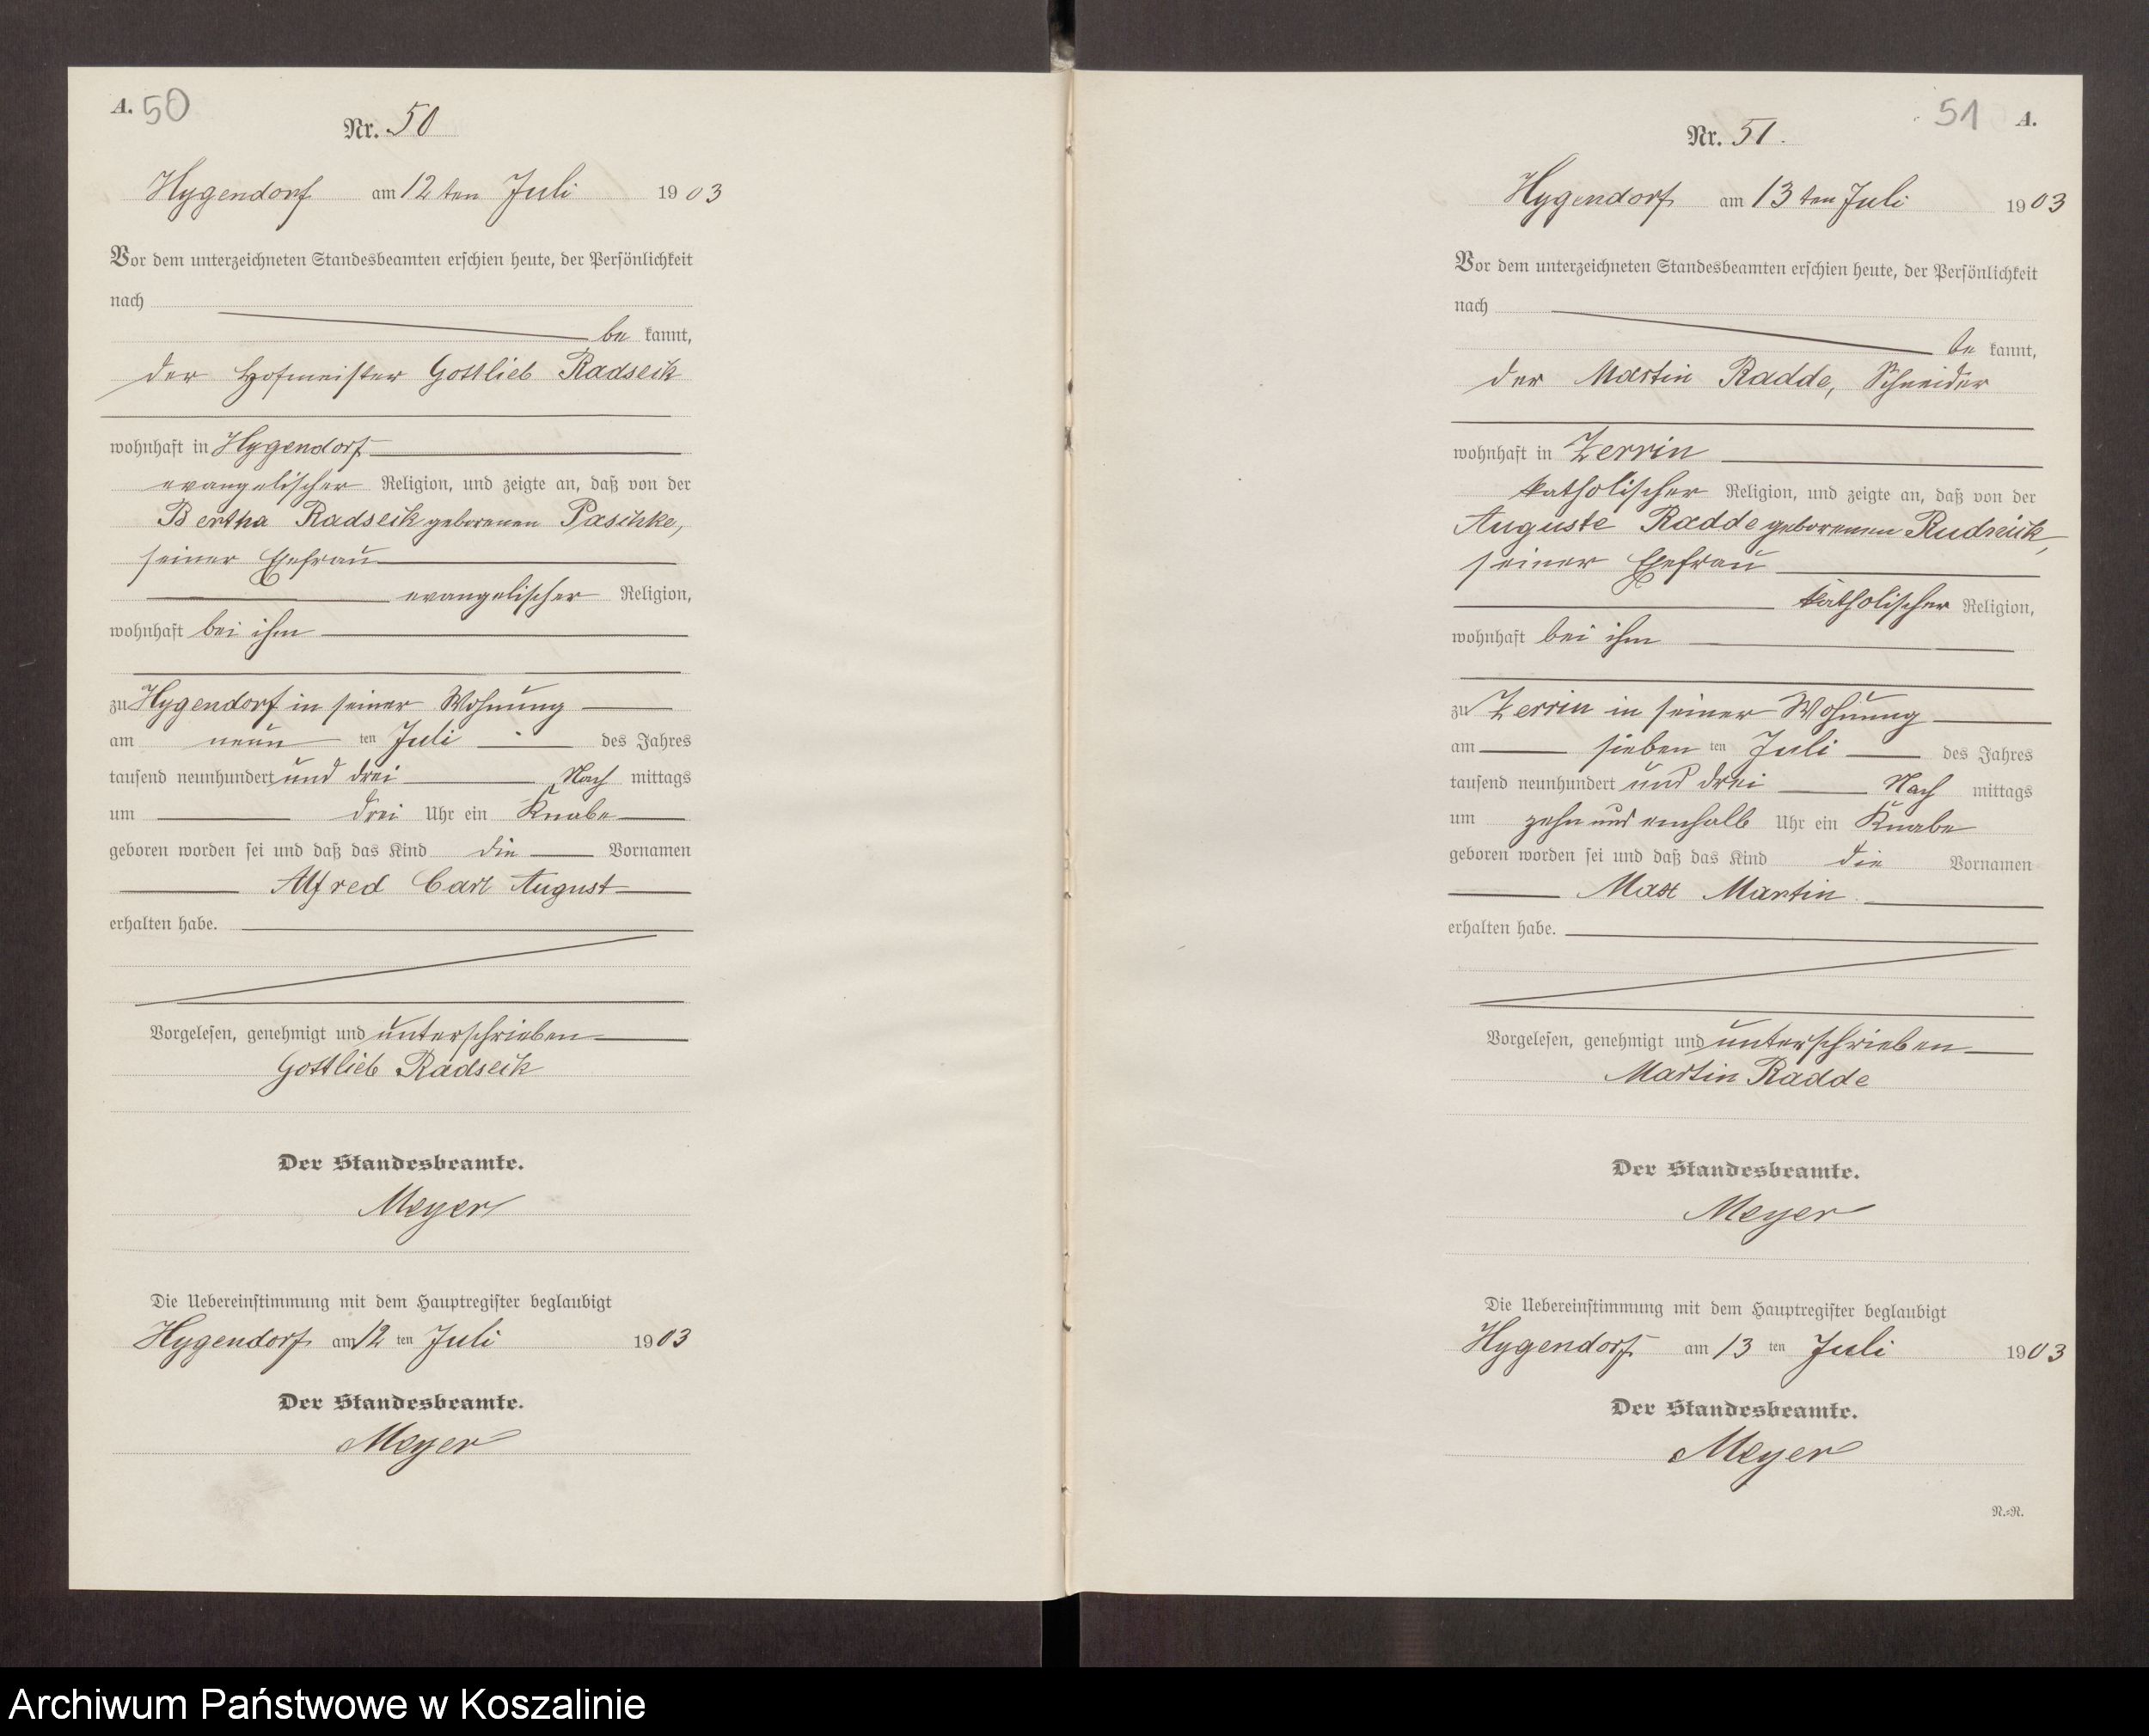 A. 50
Nr. 50
Hygendorf am 12ten Juli 1903
Vor dem unterzeichneten Standesbeamten erschien heute, der Persönlichkeit
nach
be kannt,
der Hofmeister Gottlieb Radseck
wohnhaft in Hygendorf
evangelischer Religion, und zeigte an, daß von der
Bertha Radseck geborenen Paschke,
seiner Ehefrau
evangelischer Religion,
wohnhaft bei ihm
zu Hygendorf in seiner Wohnung
am neun ten Juli des Jahres
tausend neunhundert und drei Nach mittags
um drei Uhr ein Knabe
geboren worden sei und daß das Kind die Vornamen
Alfred Carl August
erhalten habe.
Vorgelesen, genehmigt und unterschrieben
Gottlieb Radseck
Der Standesbeamte.
Meyer
Die Uebereinstimmung mit dem Hauptregister beglaubigt
Hygendorf am 12 ten Juli 1903
Der Standesbeamte.
Meyer
51 A.
Nr. 51.
Hygendorf am 13ten Juli 1903
Vor dem unterzeichneten Standesbeamten erschien heute, der Persönlichkeit
nach
be kannt,
der Martin Radde, Schneider
wohnhaft in Zerrin
katholischer Religion, und zeigte an, daß von der
Auguste Radde geborenen
seiner Ehefrau
katholischer Religion,
wohnhaft bei ihm
zu Zerrin in seiner Wohnung
am sieben ten Juli des Jahres
tausend neunhundert und drei Nach mittags
um zehn und einhalb Uhr ein Knabe
geboren worden sei und daß das Kind die Vornamen
Max Martin
erhalten habe.
Vorgelesen, genehmigt und unterschrieben
Martin Radde
Der Standesbeamte.
Meyer
Die Uebereinstimmung mit dem Hauptregister beglaubigt
Hygendorf am 13 ten Juli 1903
Der Standesbeamte.
Meyer
N.=R.
Archiwum Państwowe w Koszalinie